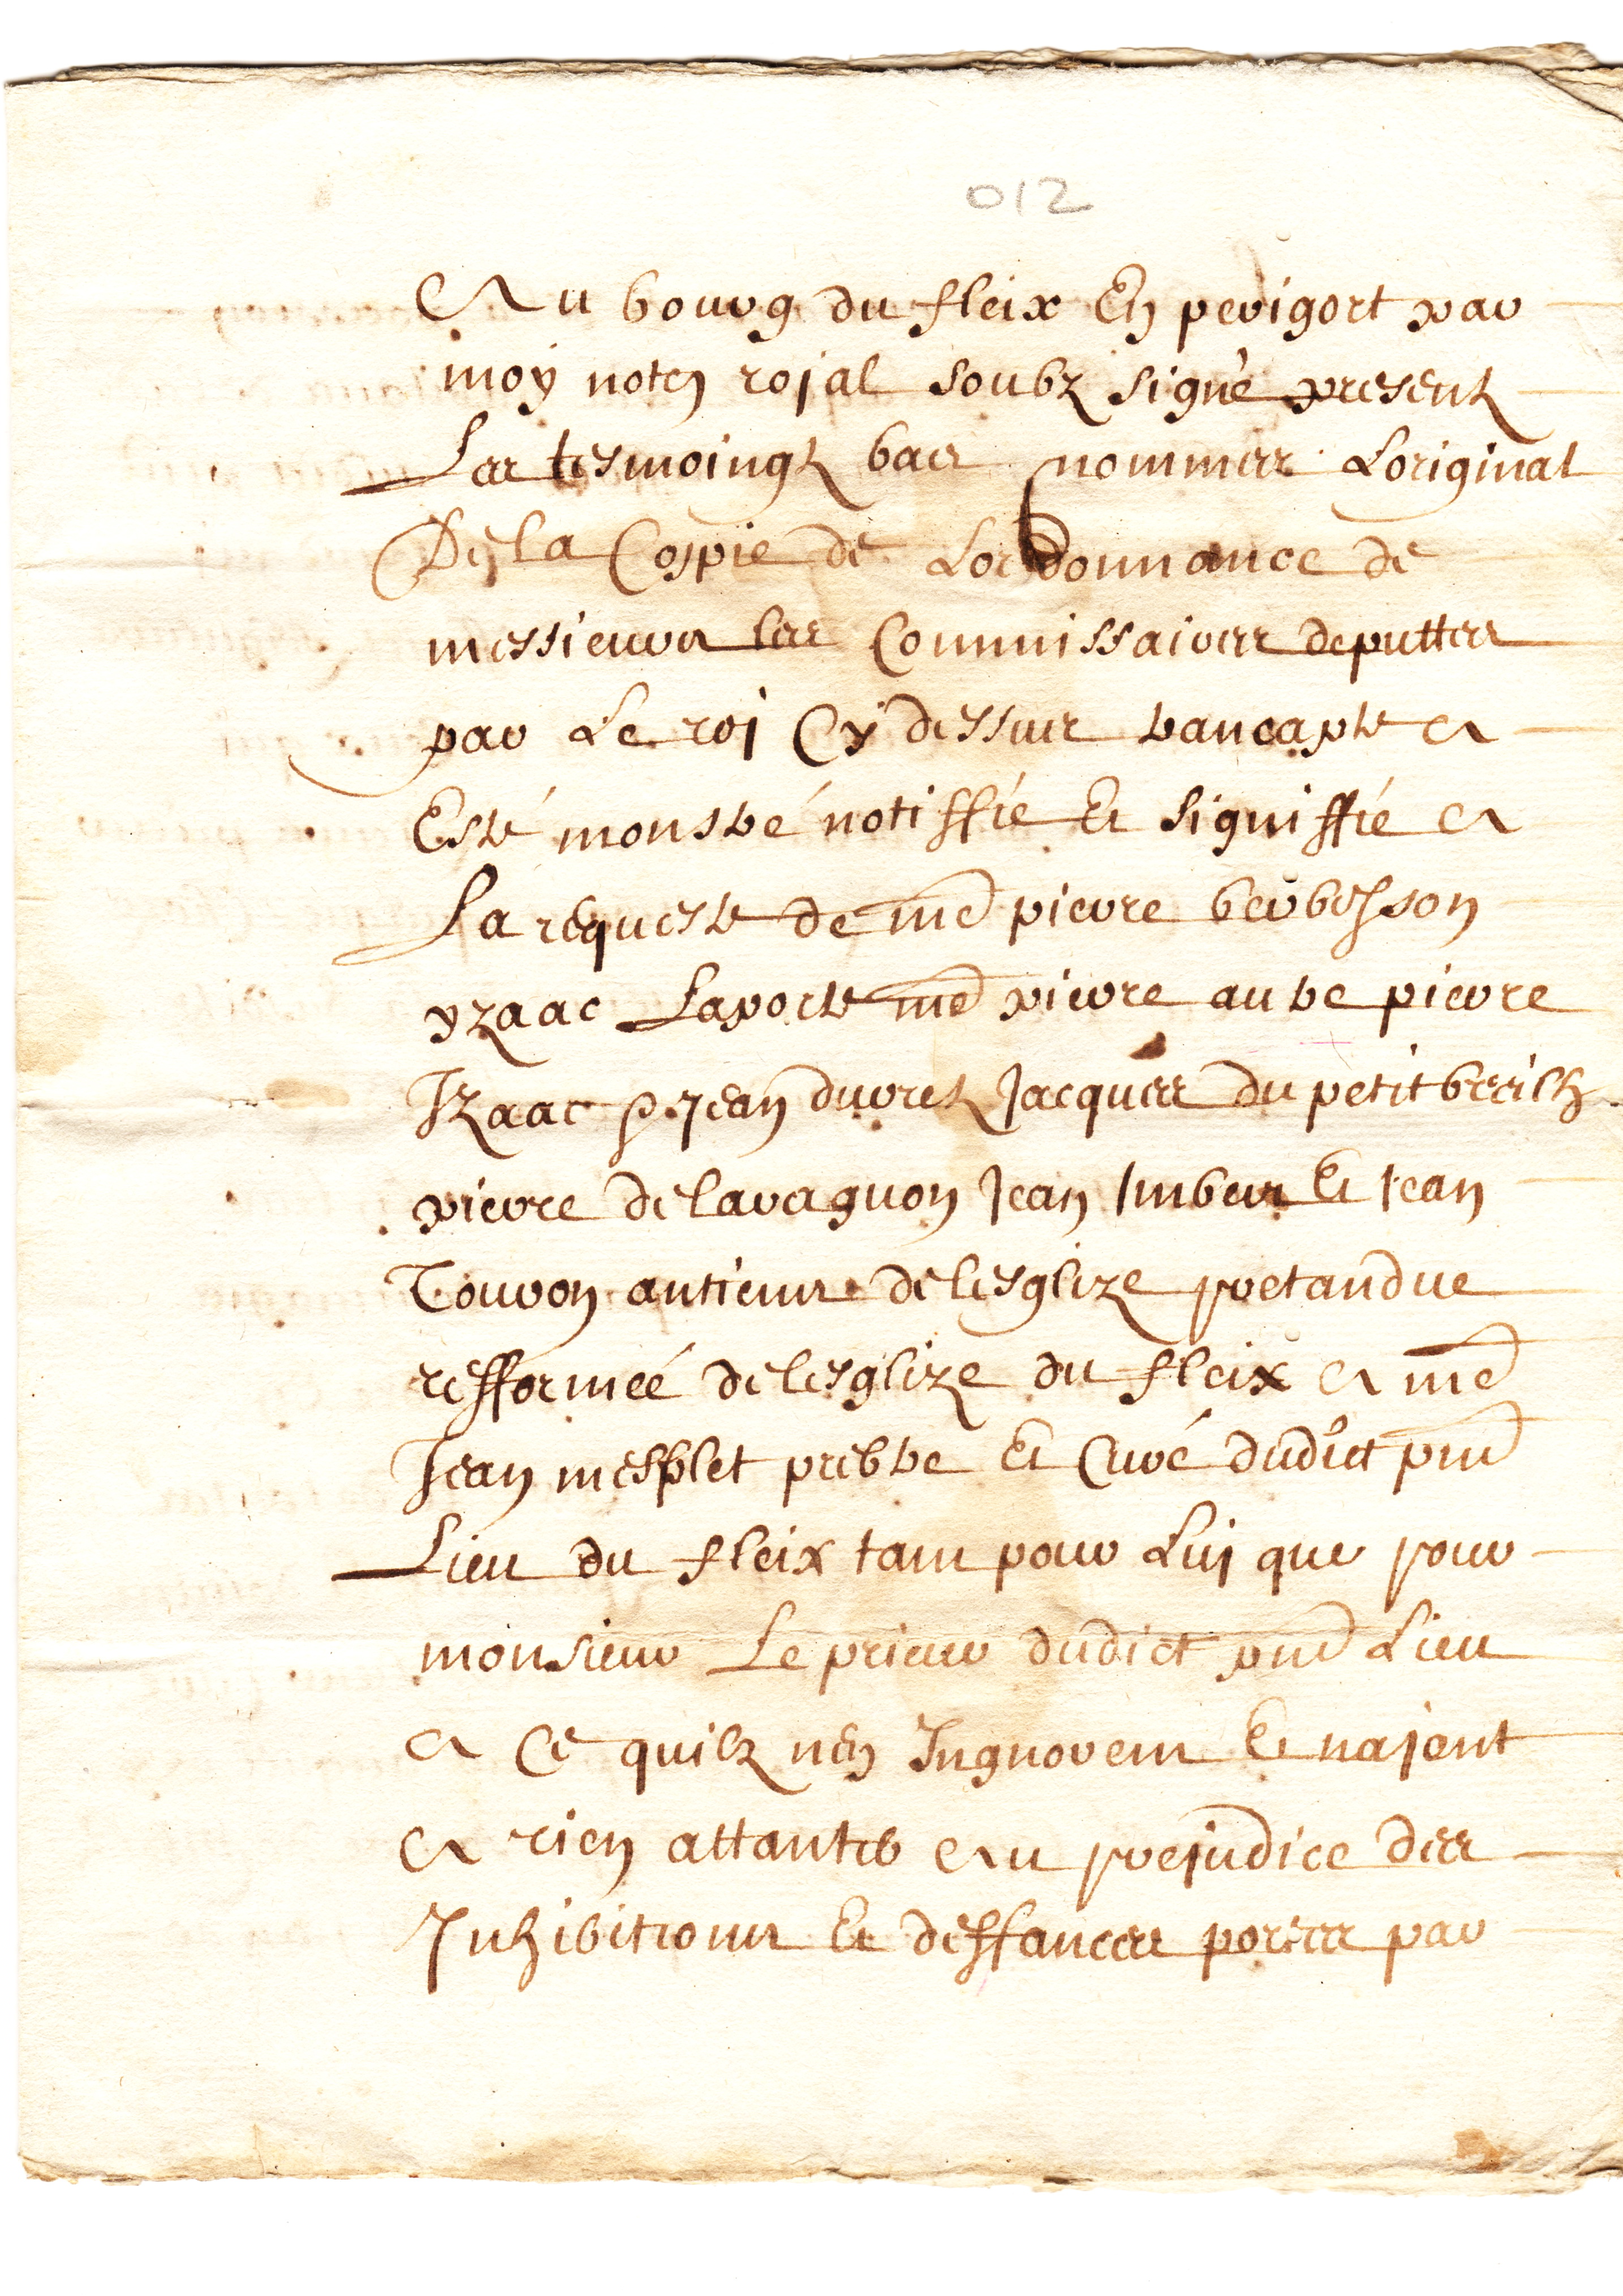 012
Au bourg du fleix En perigort par
moy notere rojal soubz signé presentz
Les tesmoingz bas nommes Loriginal
De la Coppie de Lordonnance de
messieurs les Commissaires deputtes
par Le roj Cy dessus transcripte a
Esté monstré notiffié Et signiffié a
La requeste de me pierre
yzaac Laporte me pierre aube pierre
Izaac jean Jacques du petit
pierre Jean Imbert Et jean
Touron antiens de lesglize pretandue
refformeé de lesglize du fleix a me
Jean mesplet prebtre Et Curé dudict pnt
Lieu du fleix tant pour Luj que pour
monsieur Le prieur dudict pnt Lieu
a Ce quilz nen Ingnorent Et najent
a rien attanter Au prejudice des
Inhibitions Et deffances portees par